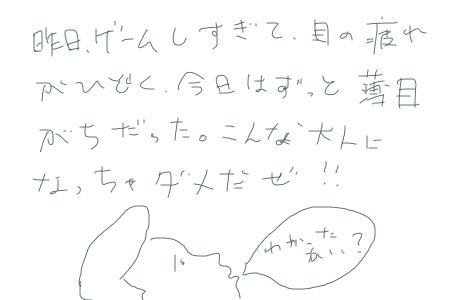 昨日、ゲームしすぎて、目の疲れ
がひどく、今日はずっと薄目
がちだった。こんな大人に
なっちゃダメだぜ!!
わかった
かい?